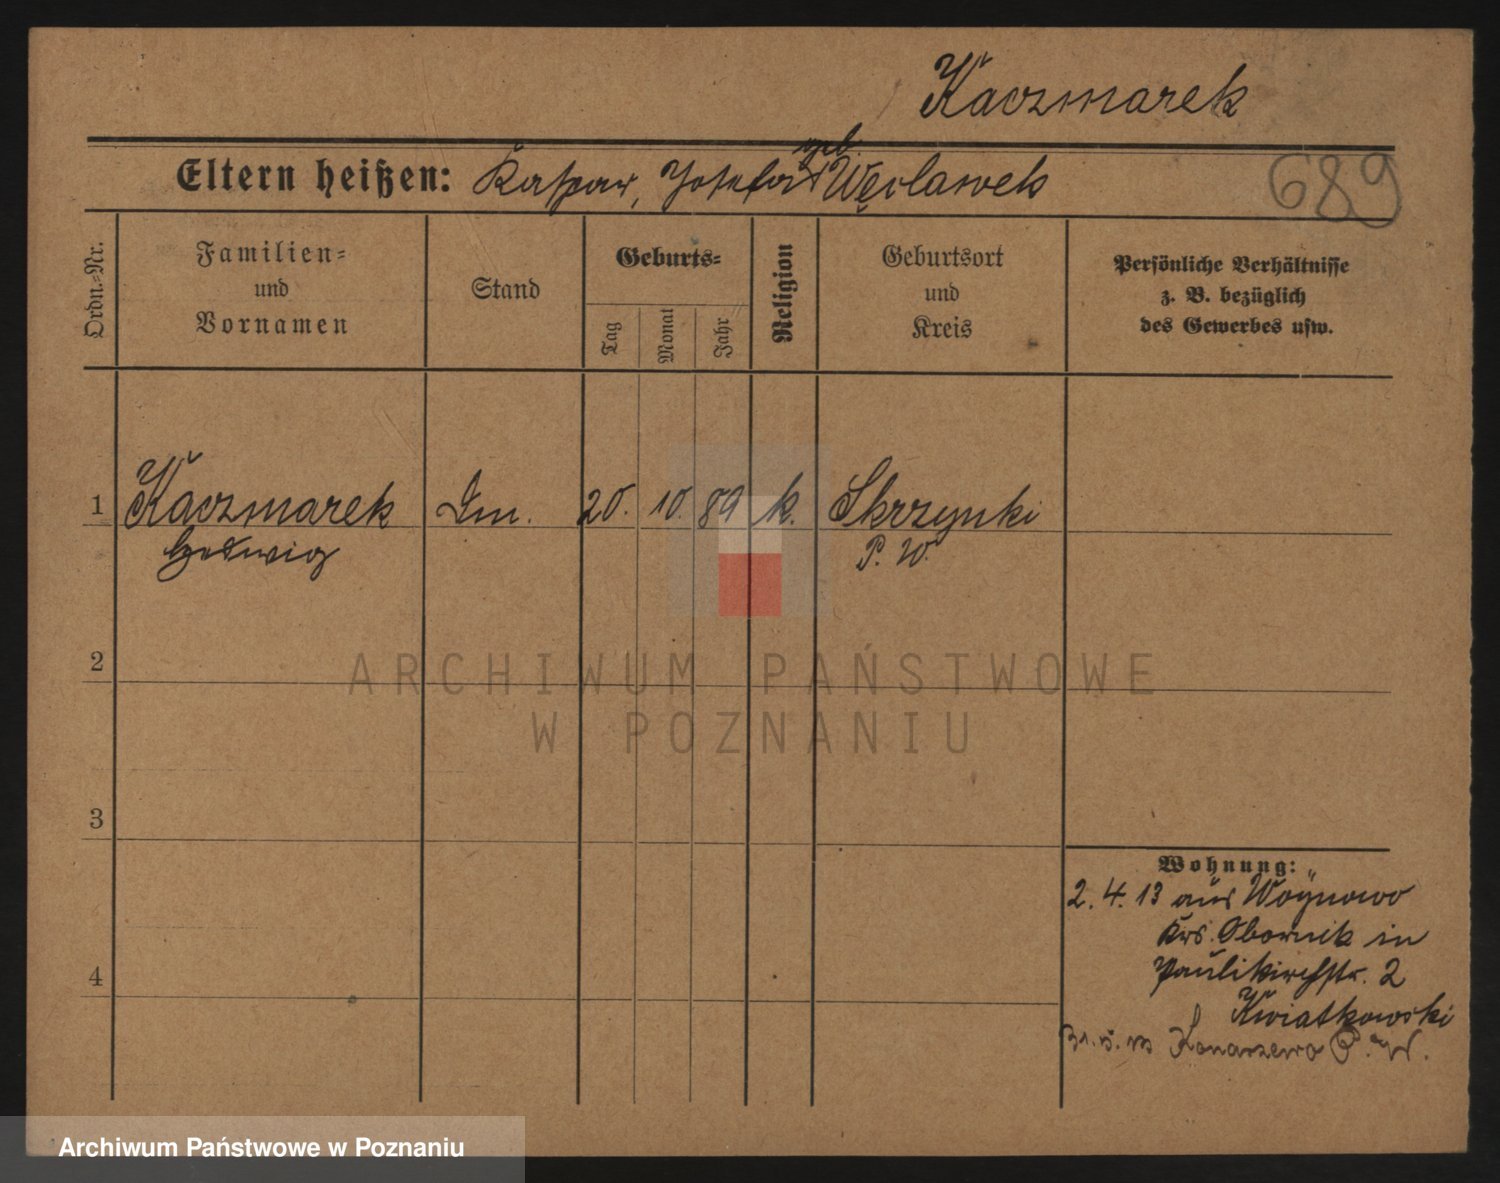 Kaczmarek
geb.
Eltern heißen: Kaspar, Josefa Węclawek
689
Ordn.-Nr.
Familien-
und
Vornamen
Stand
Geburts-
Tag
Monat
Jahr
Religion
Geburtsort
und
Kreis
Persönliche Verhältnisse
z. B. bezüglich
des Gewerbes usw.
1 Kaczmarek 20. 10. 89 k. Skrzynki
Hedwig P. W.
2
ARCHIWUM PAŃSTWOWE
W POZNANIU
3
Wohnung:
2. 4. 13 aus Woynowo
Krs. Obornik in
4 Paulikirchstr. 2
Kwiatkowski
Konarzewo P. W.
Archiwum Państwowe w Poznaniu